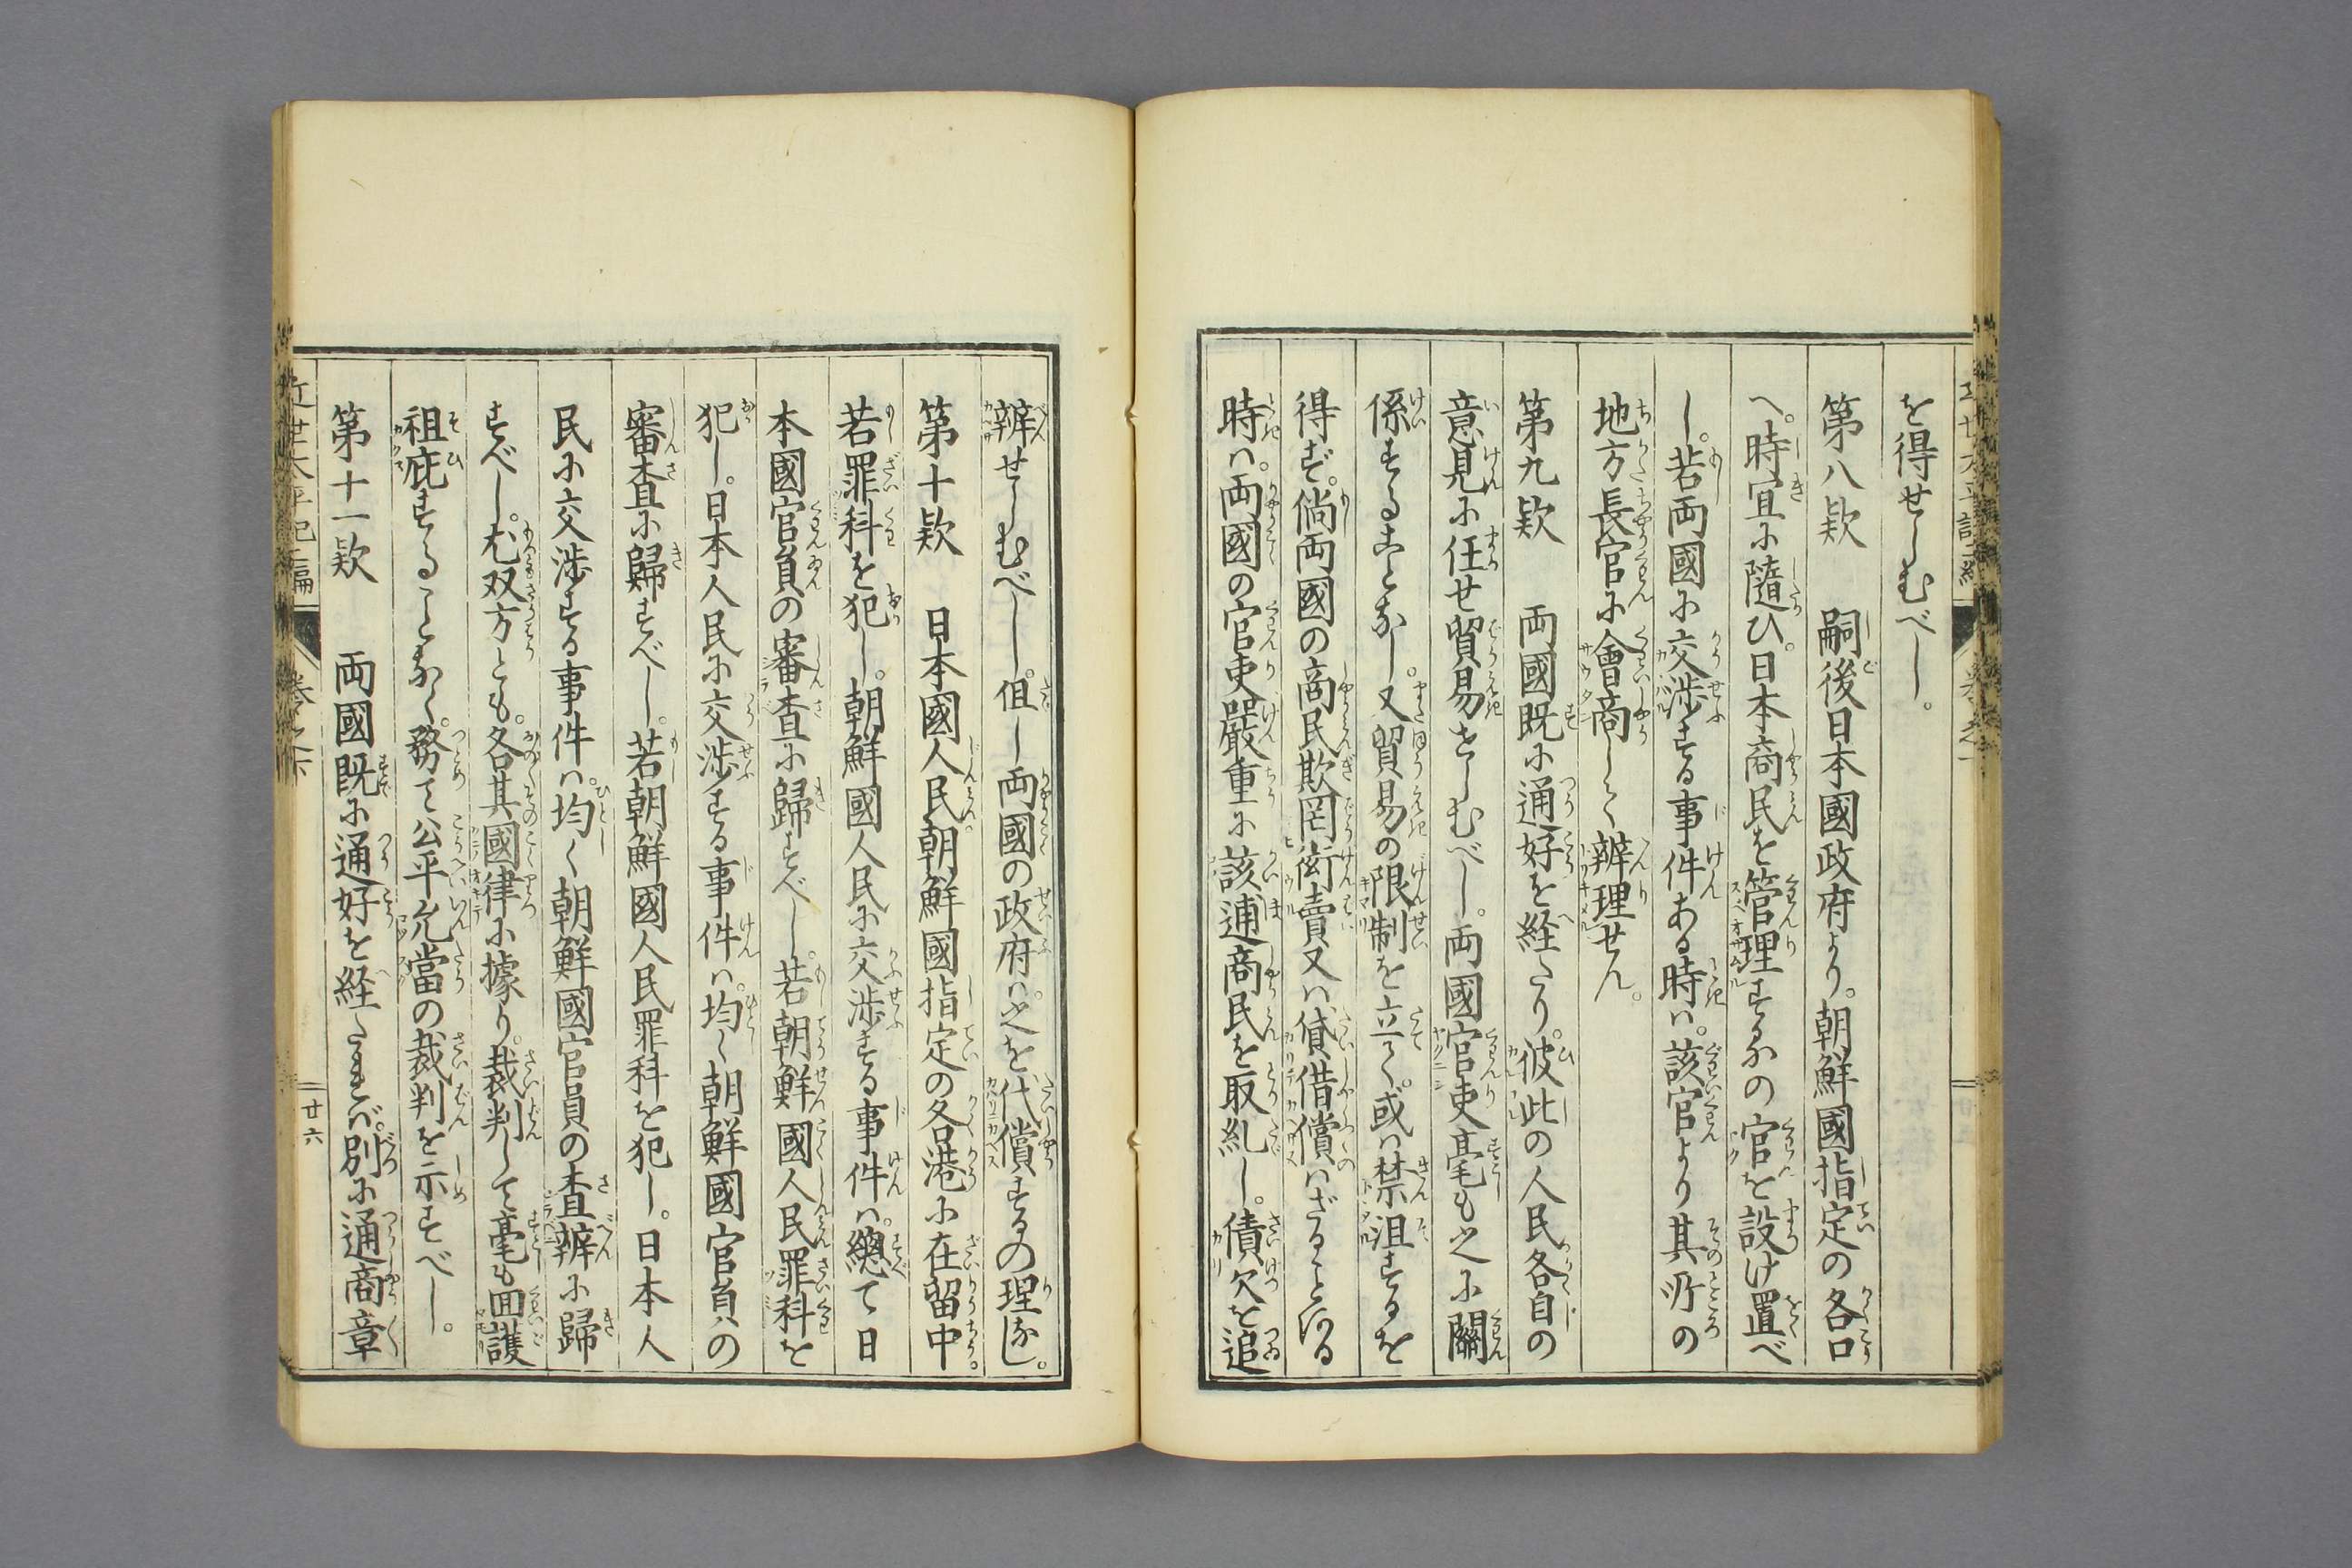 を得せしむべし。
第八欵　嗣後日本國政府より。朝鮮國指定の各口
へ。時宜に隨ひ。日本商民を管理するの官を設け置べ
し。若両國に交渉する事件ある時ハ。該官より其所の
地方長官に會商して辨理せん。
第九欵　両國既に通好を経たり。彼此の人民各自の
意見に任せ貿易さしむべし。両國官吏毫も之に關
係することなし。又貿易の限制を立て。或ハ禁沮するを
得ず。倘両國の商民欺罔衒賣又ハ貸借償ハざることある
時ハ。両國の官吏嚴重に該逋商民を取糺し。債欠を追
辨せしむべし。但し両國の政府ハ。之を代償するの理なし。
第十欵　日本國人民。朝鮮國指定の各港に在留中。
若罪科を犯し。朝鮮國人民に交渉する事件ハ。總て日
本國官員の審査に歸すべし。若朝鮮國人民罪科を
犯し。日本人民に交渉する事件ハ。均く朝鮮國官員の
審査に歸すべし。若朝鮮國人民罪科を犯し。日本人
民に交渉する事件ハ。均く朝鮮國官員の査辨に歸
すべし。尤双方とも。各其國律に據り。裁判して毫も回護
袒庇することなく。務て公平允當の裁判を示すべし。
第十一欵　両國既に通好を経たれバ。別に通商章
近世太平記二編
廿六